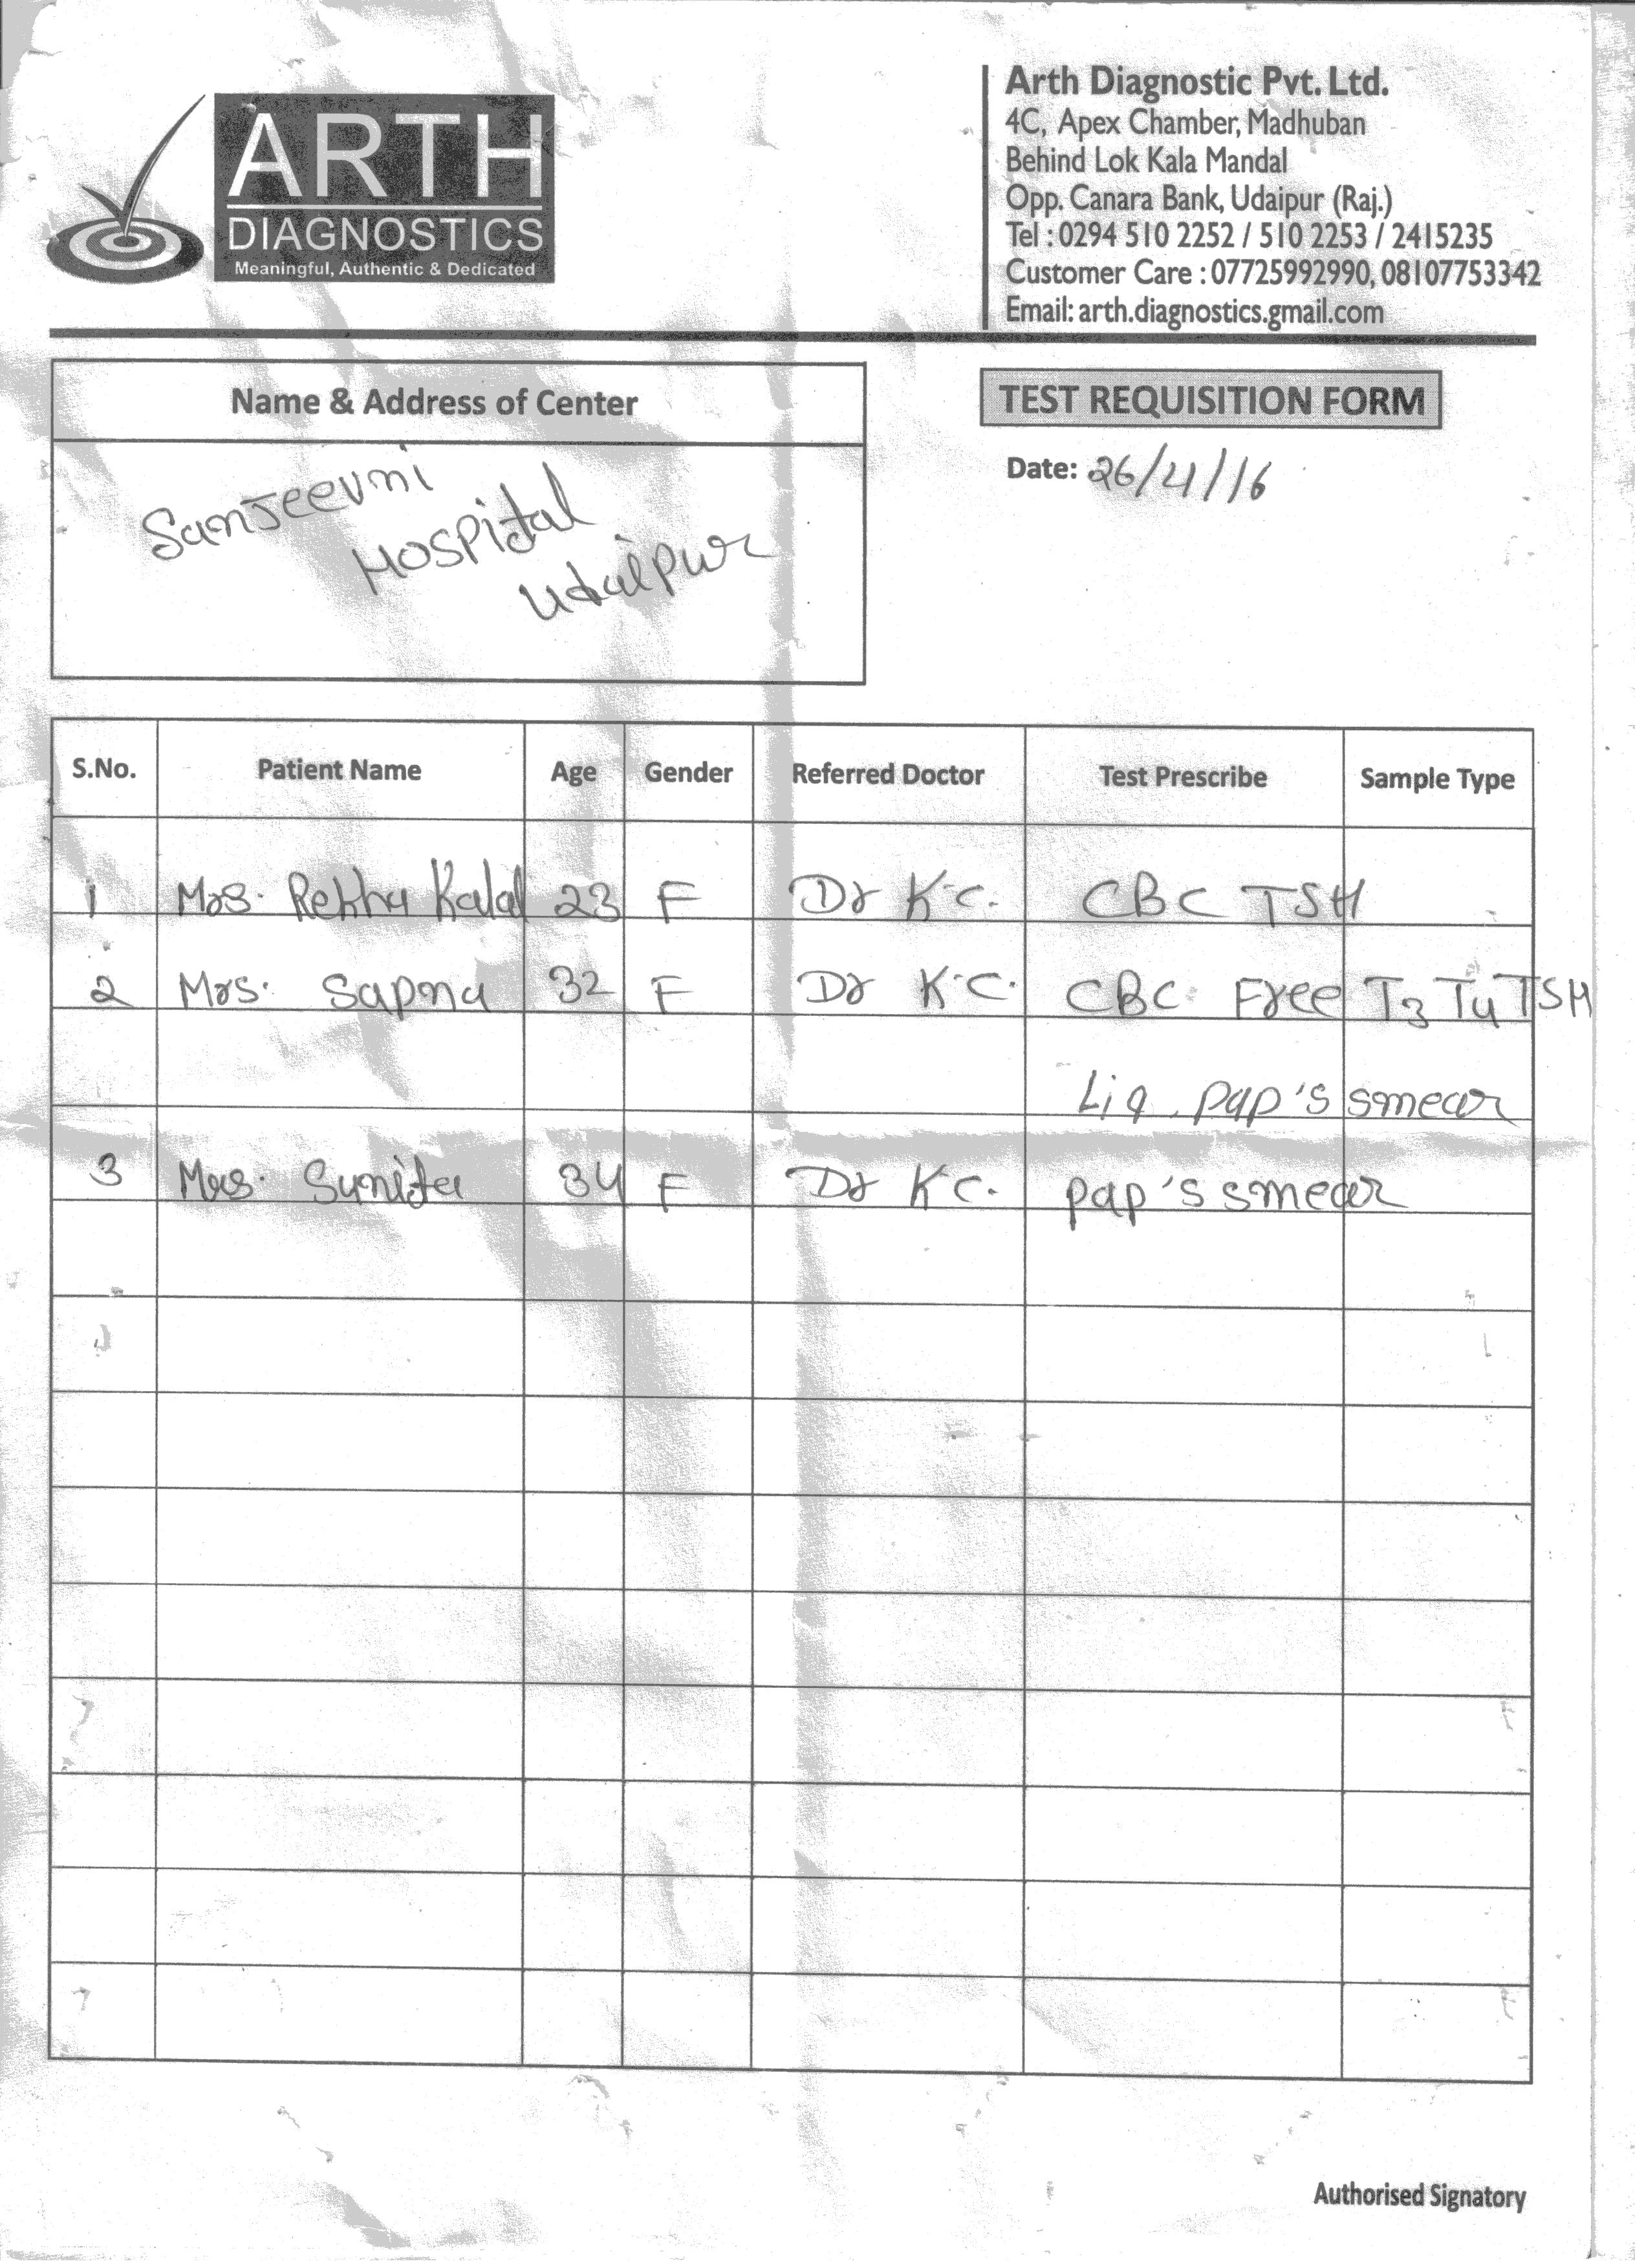 ARTH
DIAGNOSTICS
Meaningful, Authentic & Dedicated
Arth Diagnostic Pvt. Ltd.
4C, Apex Chamber, Madhuban
Behind Lok Kala Mandal
Opp. Canara Bank, Udaipur (Raj.)
Tel : 0294 510 2252 / 510 2253 / 2415235
Customer Care : 07725992990, 08107753342
Email: arth.diagnostics.gmail.com
Name & Address of Center
Sanjeevni
Hospital
Udaipur
TEST REQUISITION FORM
Date: 26/4/16
S.No. Patient Name Age Gender Referred Doctor Test Prescribe Sample Type
1 Mrs. Rekha Kalal 23 F Dr K.C. CBC TSH
2 Mrs. Sapna 32 F Dr K.C. CBC Free T3 T4 TSH
Liq. pap's smear
3 Mrs. Sunita 34 F Dr K.C. pap's smear
Authorised Signatory